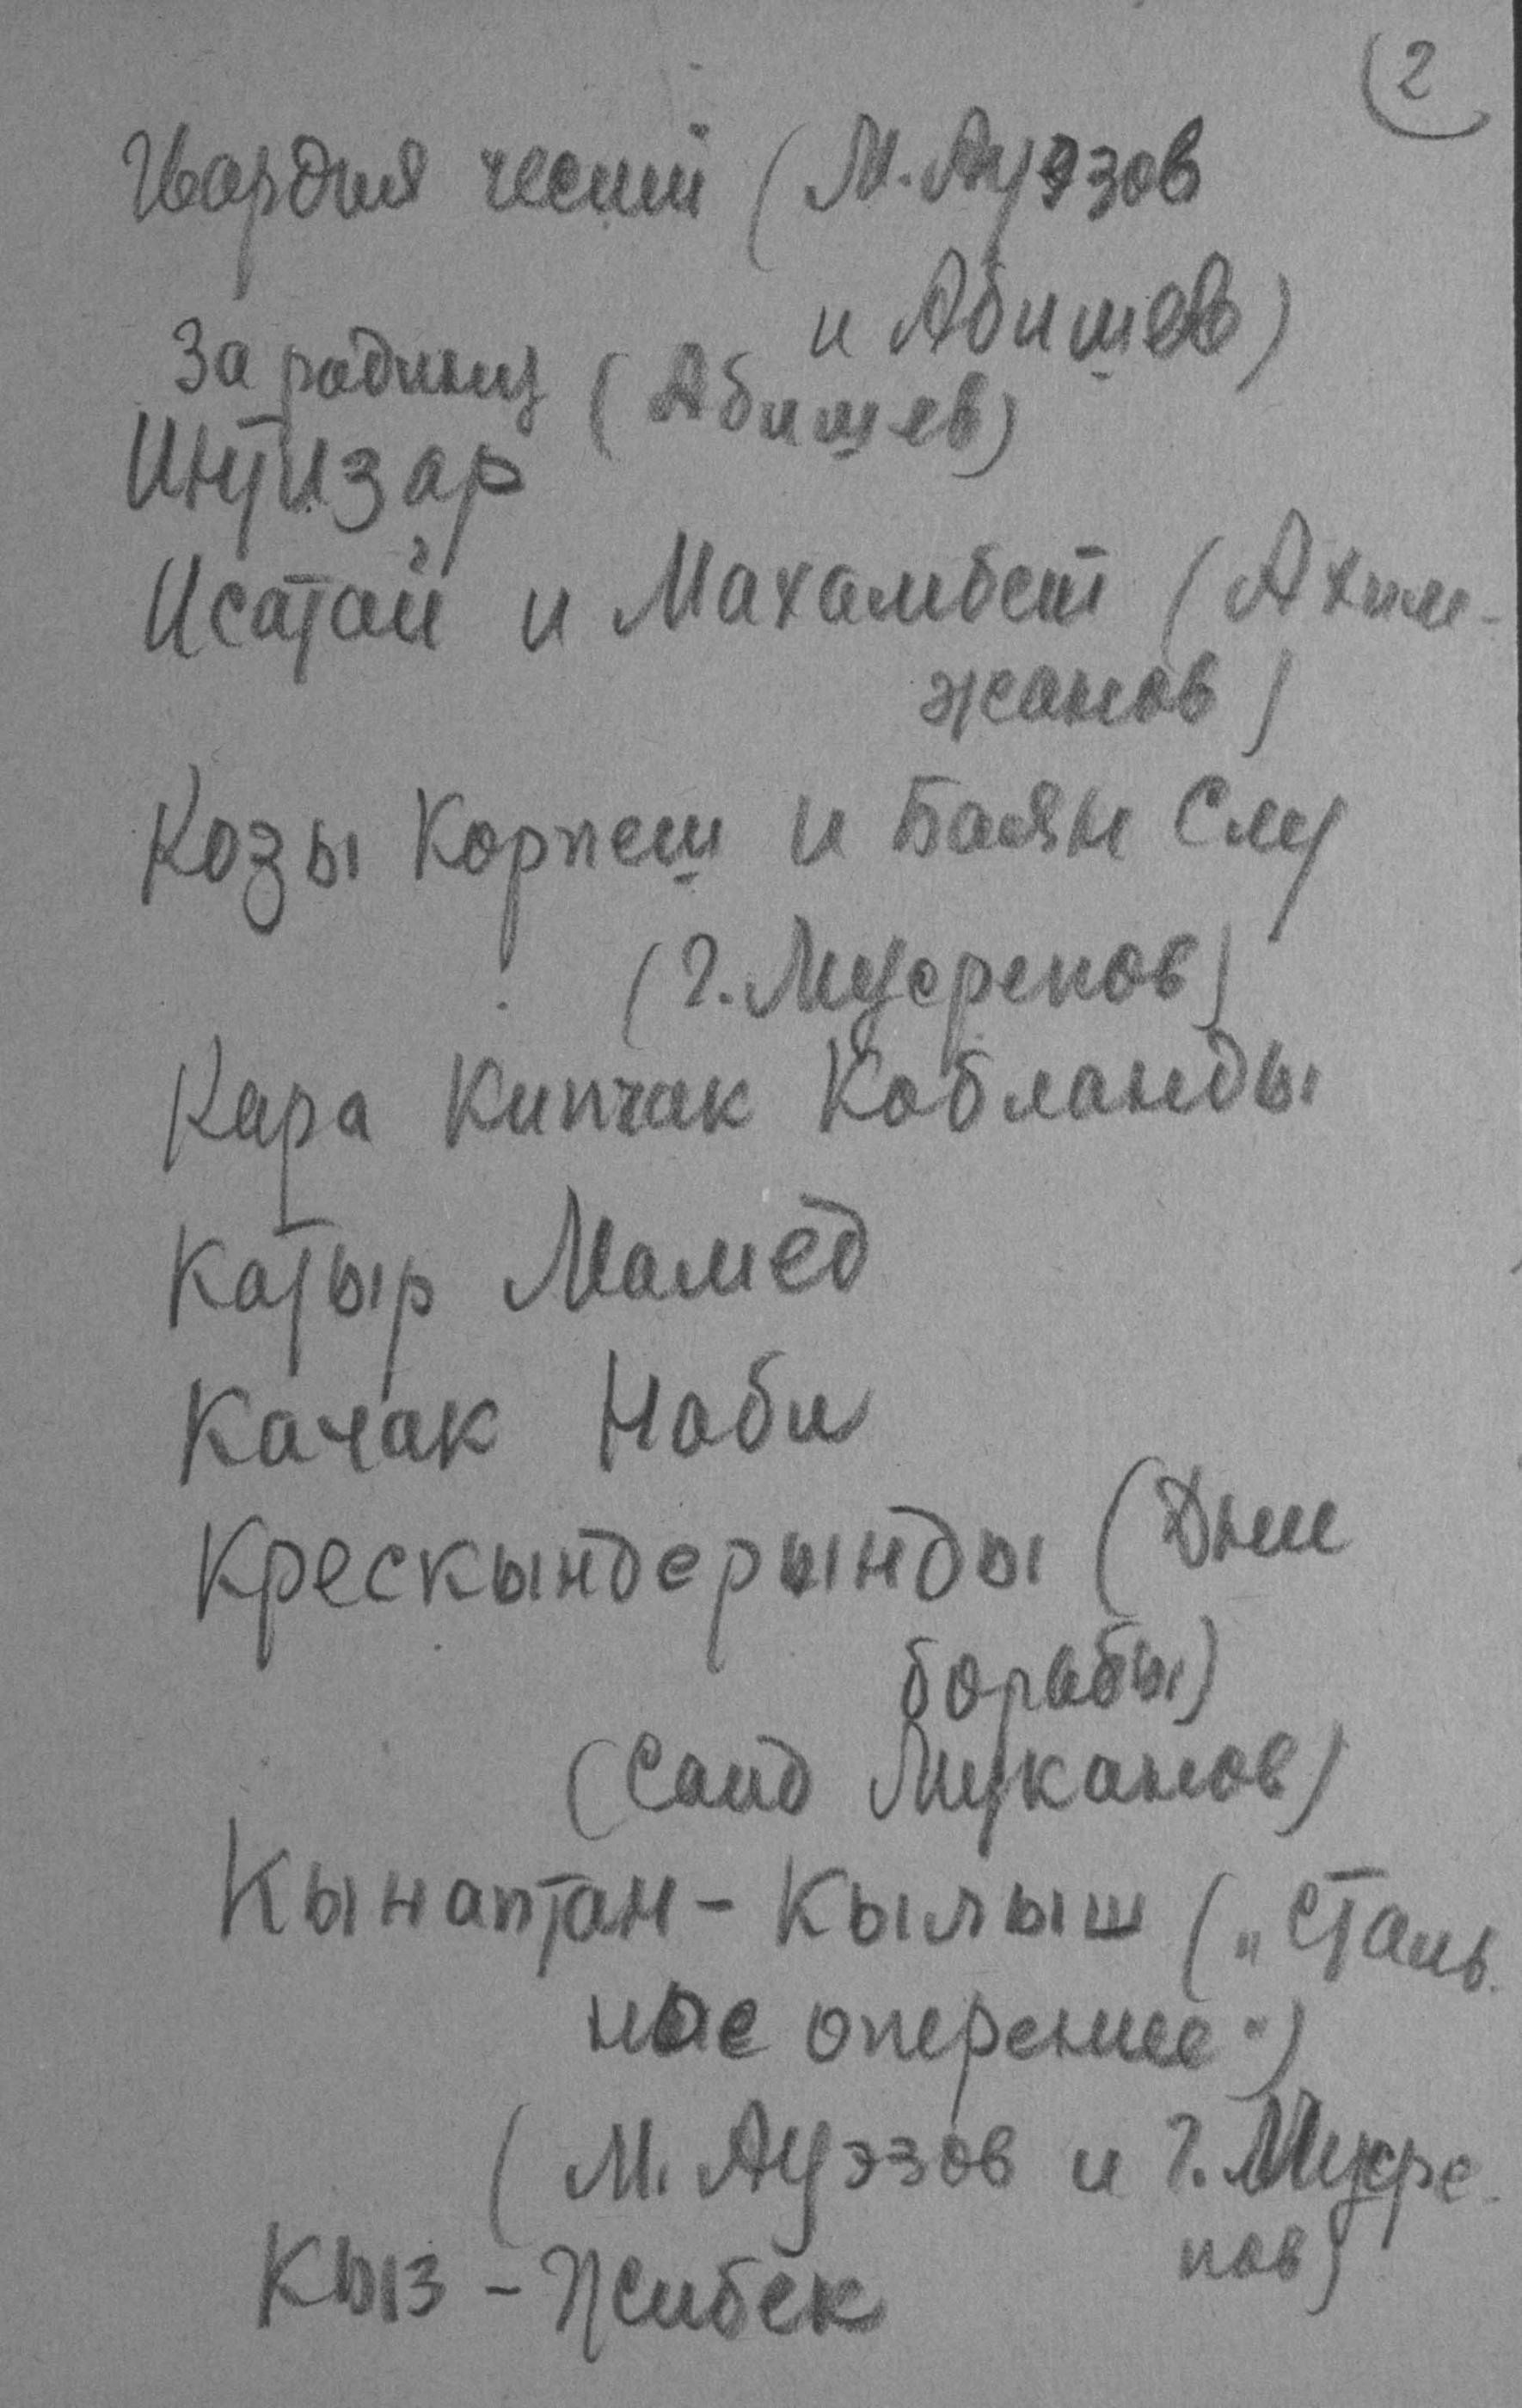 2
Гвардия чести (М. Ауэзов
и Абишев)
За родину (Абишев)
Интизар
Исатай и Махамбет (Ахим-
жанов)
Козы Корпеш и Баян Слу
(Г. Мусрепов)
Кара Кипчак Кобланды
Катыр Мамед
Качак Наби
Крескындерынды (Дни
борьбы)
(Саид Муканов)
Кынаптан-Кылыш („Сталь-
ное оперение")
(М. Ауэзов и Г. Мусре-
пов)
Кыз-Жибек